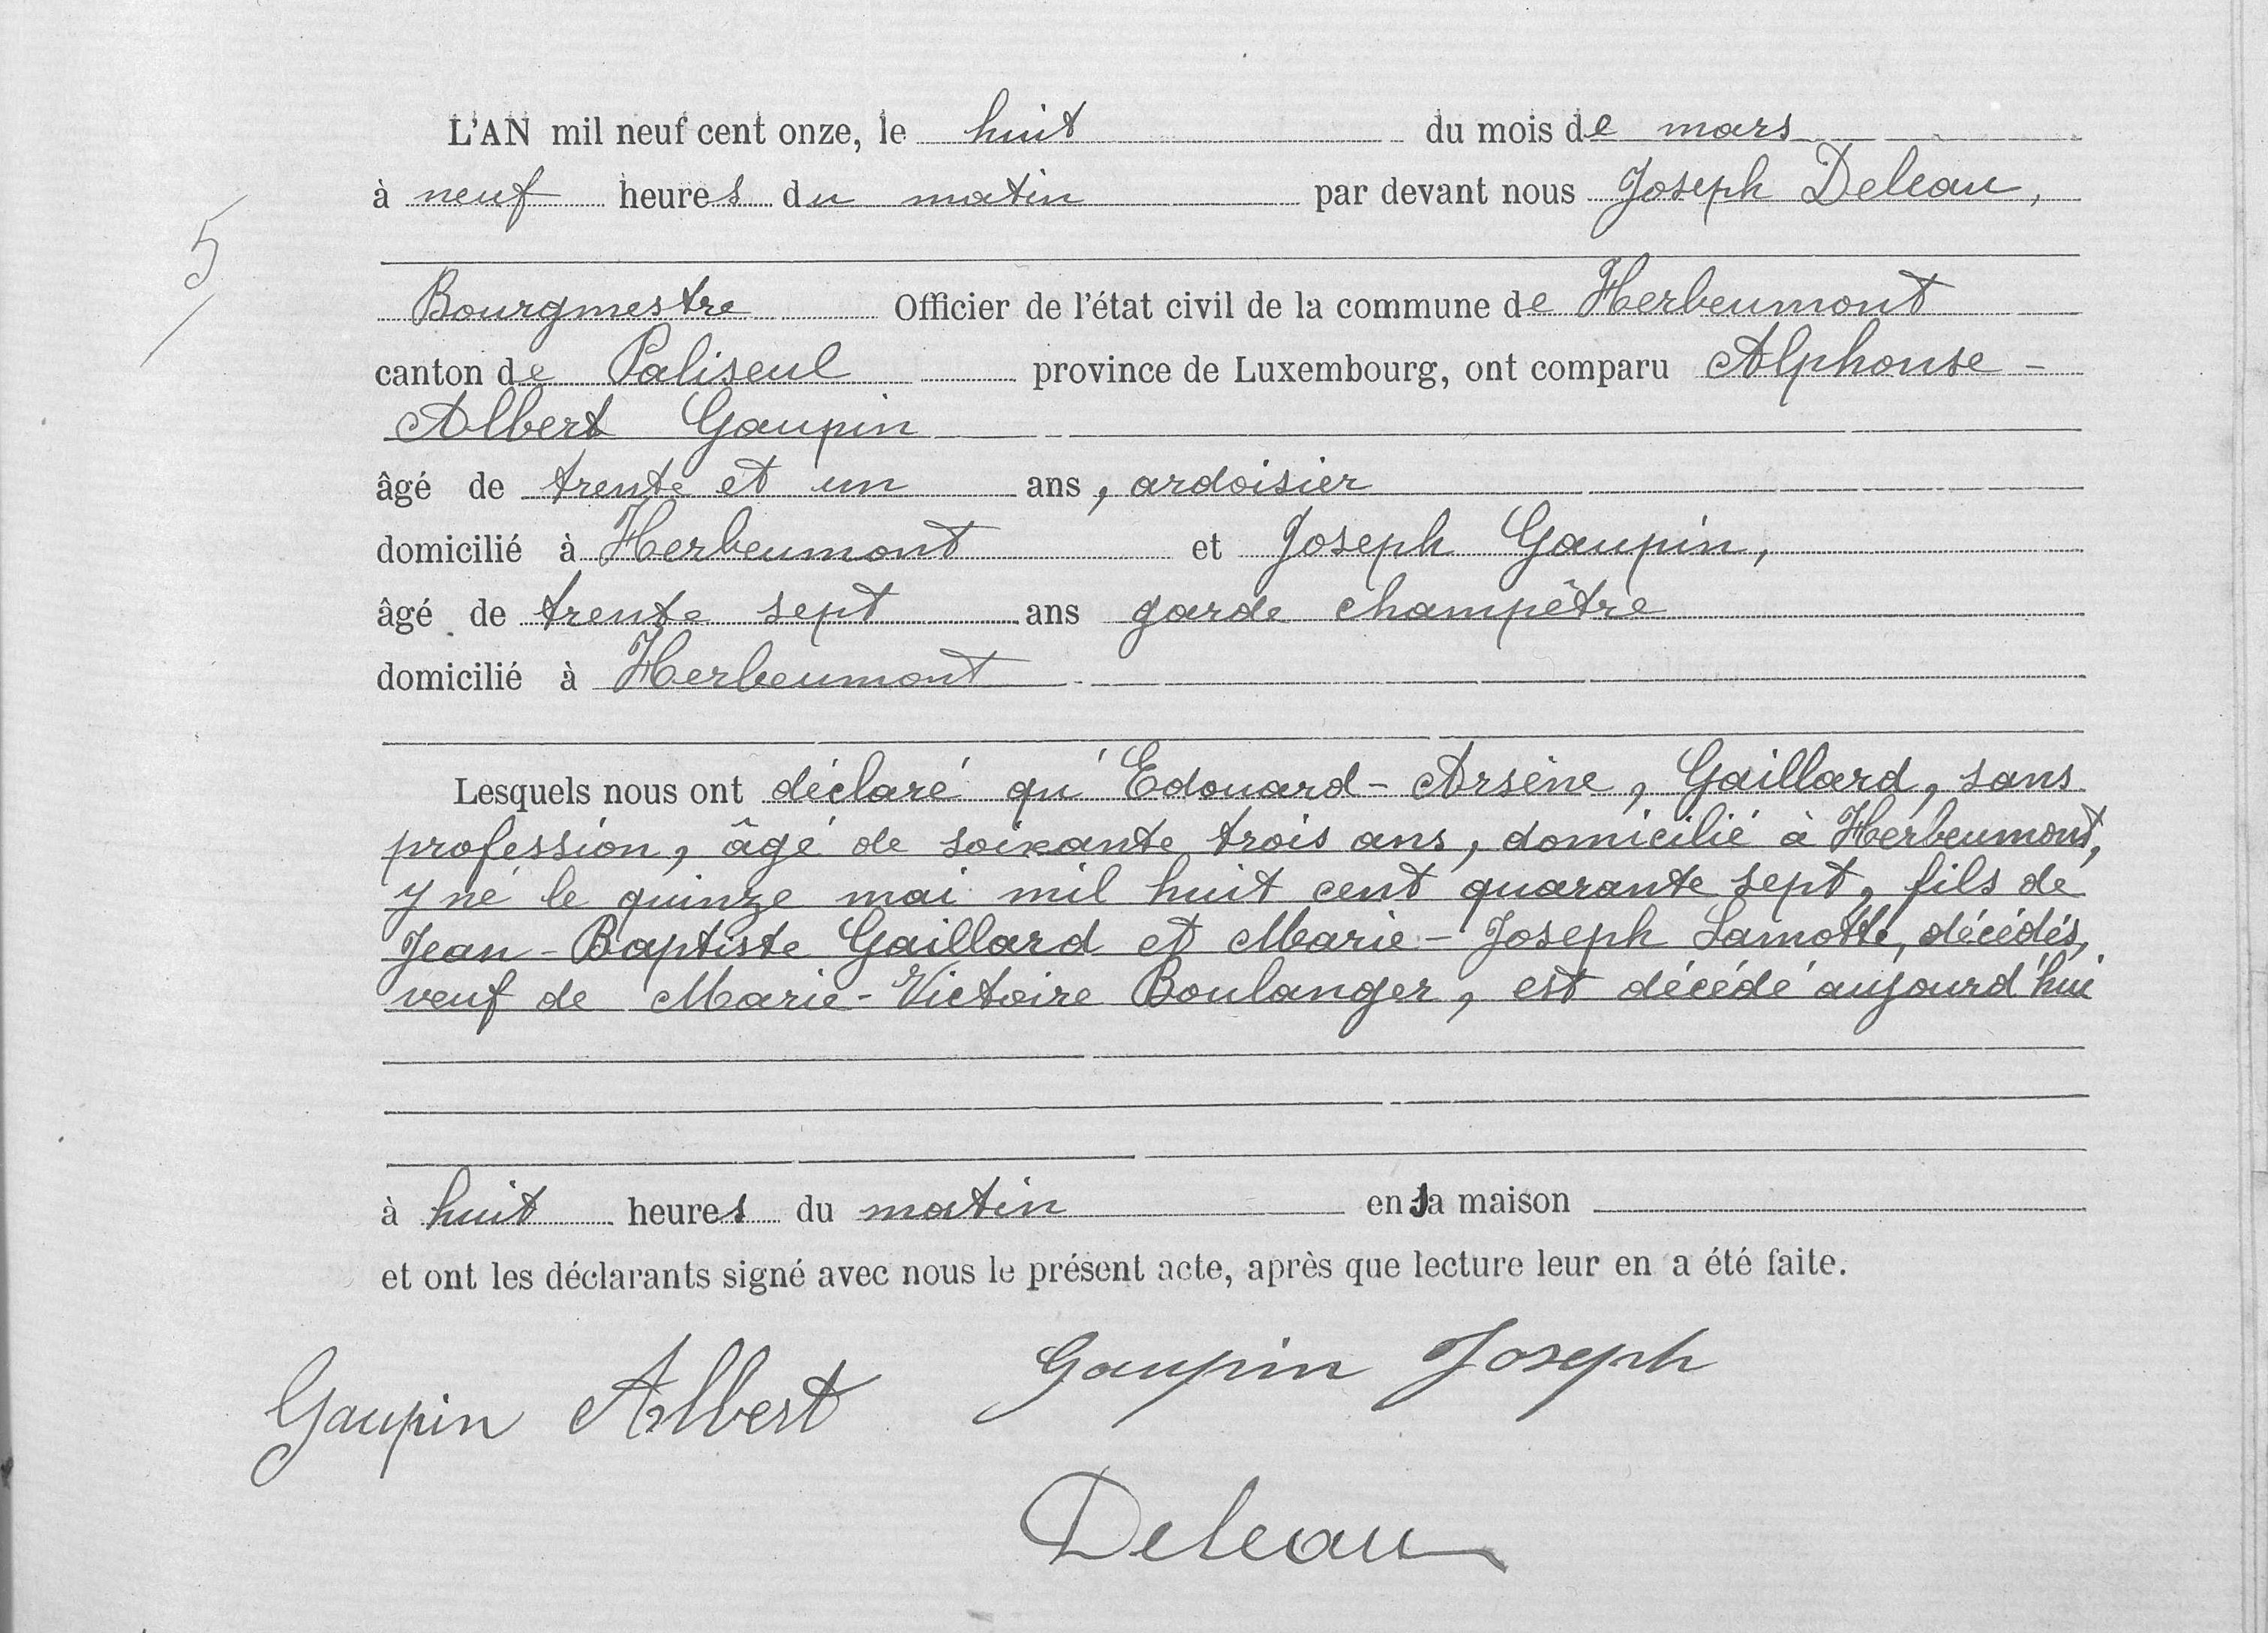 L'AN mil neuf cent onze, le huit du mois de mars
à neuf heures du matin par devant nous Joseph Deleau,
5
Bourgmestre Officier de l'état civil de la commune de Herbeumont
canton de Paliseul province de Luxembourg, ont comparu Alphonse-
Albert Gaupin
âgé de trente et un ans, ardoisier
domicilié à Herbeumont et Joseph Gaupin,
âgé de trente sept ans garde champêtre
domicilié à Herbeumont
Lesquels nous ont déclaré qu'Edouard-Arsène, Gaillard, sans
profession, âgé de soixante trois ans, domicilié à Herbeumont,
y né le quinze mai mil huit cent quarante sept, fils de
Jean-Baptiste Gaillard et Marie-Joseph Lamotte, décédés,
veuf de Marie-Victoire Boulanger, est décédé aujourd'hui
à huit heures du matin en sa maison
et ont les déclarants signé avec nous le présent acte, après que lecture leur en a été faite.
Gaupin Albert Gaupin Joseph
Deleau